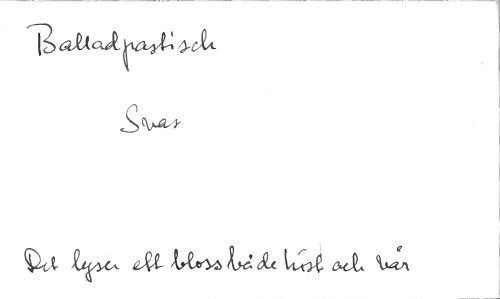 Balladpastisch
Svar
Det lyser ett bloss både höst och vår